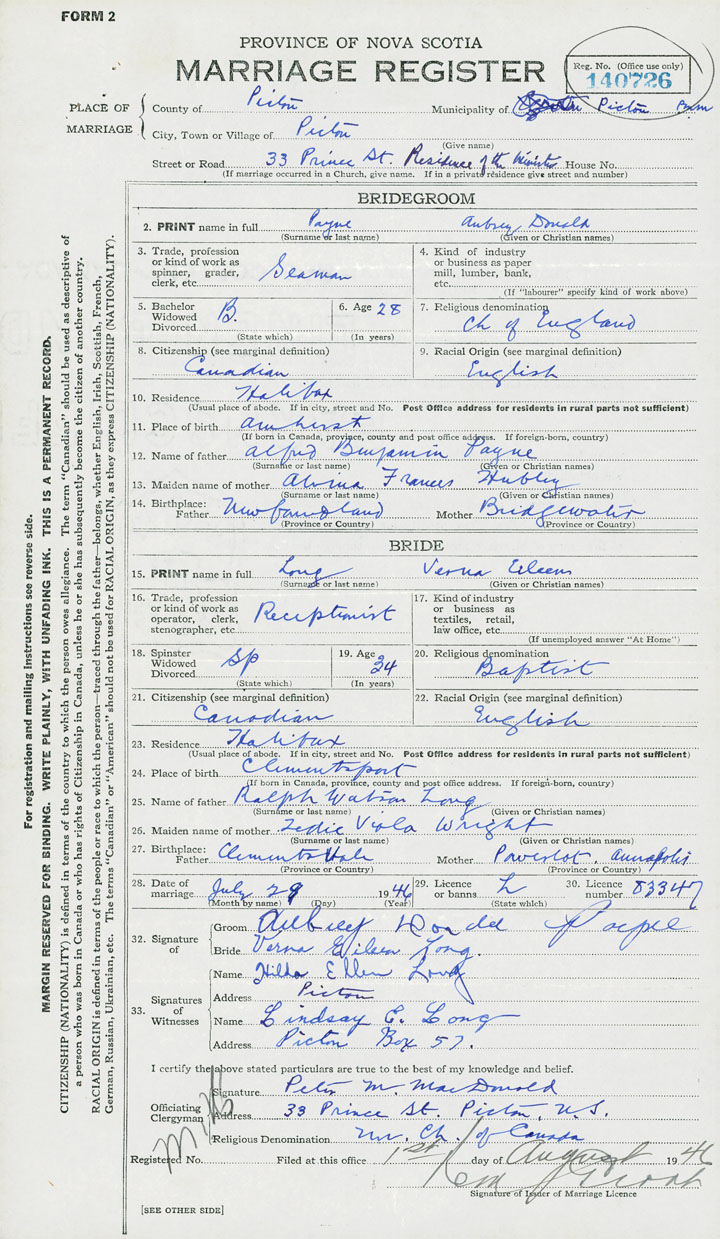 FORM 2
PROVINCE OF NOVA SCOTIA
MARRIAGE REGISTER
Reg. No. (Office use only)
140726
PLACE OF MARRIAGE
County of Pictou Municipality of Pictou
City, Town or Village of Pictou
(Give name)
Street or Road 33 Prince St. Residence of the Minister House No.
(If marriage occurred in a Church, give name. If in a private residence give street and number)
BRIDEGROOM
2. PRINT name in full Payne Aubrey Donald
(Surname or last name) (Given or Christian names)
3. Trade, profession or kind of work as spinner, grader, clerk, etc. Seaman
4. Kind of industry or business as paper mill, lumber, bank, etc.
(If "labourer" specify kind of work above)
5. Bachelor Widowed Divorced B.
(State which)
6. Age 28
(In years)
7. Religious denomination Ch of England
8. Citizenship (see marginal definition) Canadian
9. Racial Origin (see marginal definition) English
10. Residence Halifax
(Usual place of abode. If in city, street and No. Post Office address for residents in rural parts not sufficient)
11. Place of birth Amherst
(If born in Canada, province, county and post office address. If foreign-born, country)
12. Name of father Alfred Benjamin Payne
(Surname or last name) (Given or Christian names)
13. Maiden name of mother Frances Hubley
(Surname or last name) (Given or Christian names)
14. Birthplace: Father Newfoundland Mother Bridgewater
(Province or Country) (Province or Country)
BRIDE
15. PRINT name in full Long Verna Eileen
(Surname or last name) (Given or Christian names)
16. Trade, profession or kind of work as operator, clerk, stenographer, etc. Receptionist
17. Kind of industry or business as textiles, retail, law office, etc.
(If unemployed answer "At Home")
18. Spinster Widowed Divorced Sp
(State which)
19. Age 24
(In years)
20. Religious denomination Baptist
21. Citizenship (see marginal definition) Canadian
22. Racial Origin (see marginal definition) English
23. Residence Halifax
(Usual place of abode. If in city, street and No. Post Office address for residents in rural parts not sufficient)
24. Place of birth Clementsport
(If born in Canada, province, county and post office address. If foreign-born, country)
25. Name of father Ralph Watson Long
(Surname or last name) (Given or Christian names)
26. Maiden name of mother Viola Wright
(Surname or last name) (Given or Christian names)
27. Birthplace: Father Clements Vale Mother Annapolis
(Province or Country) (Province or Country)
28. Date of marriage July 29 1946
(Month by name) (Day) (Year)
29. Licence or banns L
(State which)
30. Licence number 83347
32. Signature of
Groom
Bride Verna Eileen Long.
33. Signatures of Witnesses
Name Hilda Ellen Long
Address Pictou
Name Lindsay E. Long
Address Pictou Box 57.
I certify the above stated particulars are true to the best of my knowledge and belief.
Officiating Clergyman
Signature Peter M. MacDonald
Address 33 Prince St. Pictou, N.S.
Religious Denomination Un. Ch. of Canada
Registered No. Filed at this office 1st day of August 1946
Signature of Issuer of Marriage Licence
[SEE OTHER SIDE]
For registration and mailing instructions see reverse side.
MARGIN RESERVED FOR BINDING. WRITE PLAINLY, WITH UNFADING INK. THIS IS A PERMANENT RECORD.
CITIZENSHIP (NATIONALITY) is defined in terms of the country to which the person owes allegiance. The term "Canadian" should be used as descriptive of
a person who was born in Canada or who has rights of Citizenship in Canada, unless he or she has subsequently become the citizen of another country.
RACIAL ORIGIN is defined in terms of the people or race to which the person—traced through the father—belongs, whether English, Irish, Scottish, French,
German, Russian, Ukrainian, etc. The terms "Canadian" or "American" should not be used for RACIAL ORIGIN, as they express CITIZENSHIP (NATIONALITY).